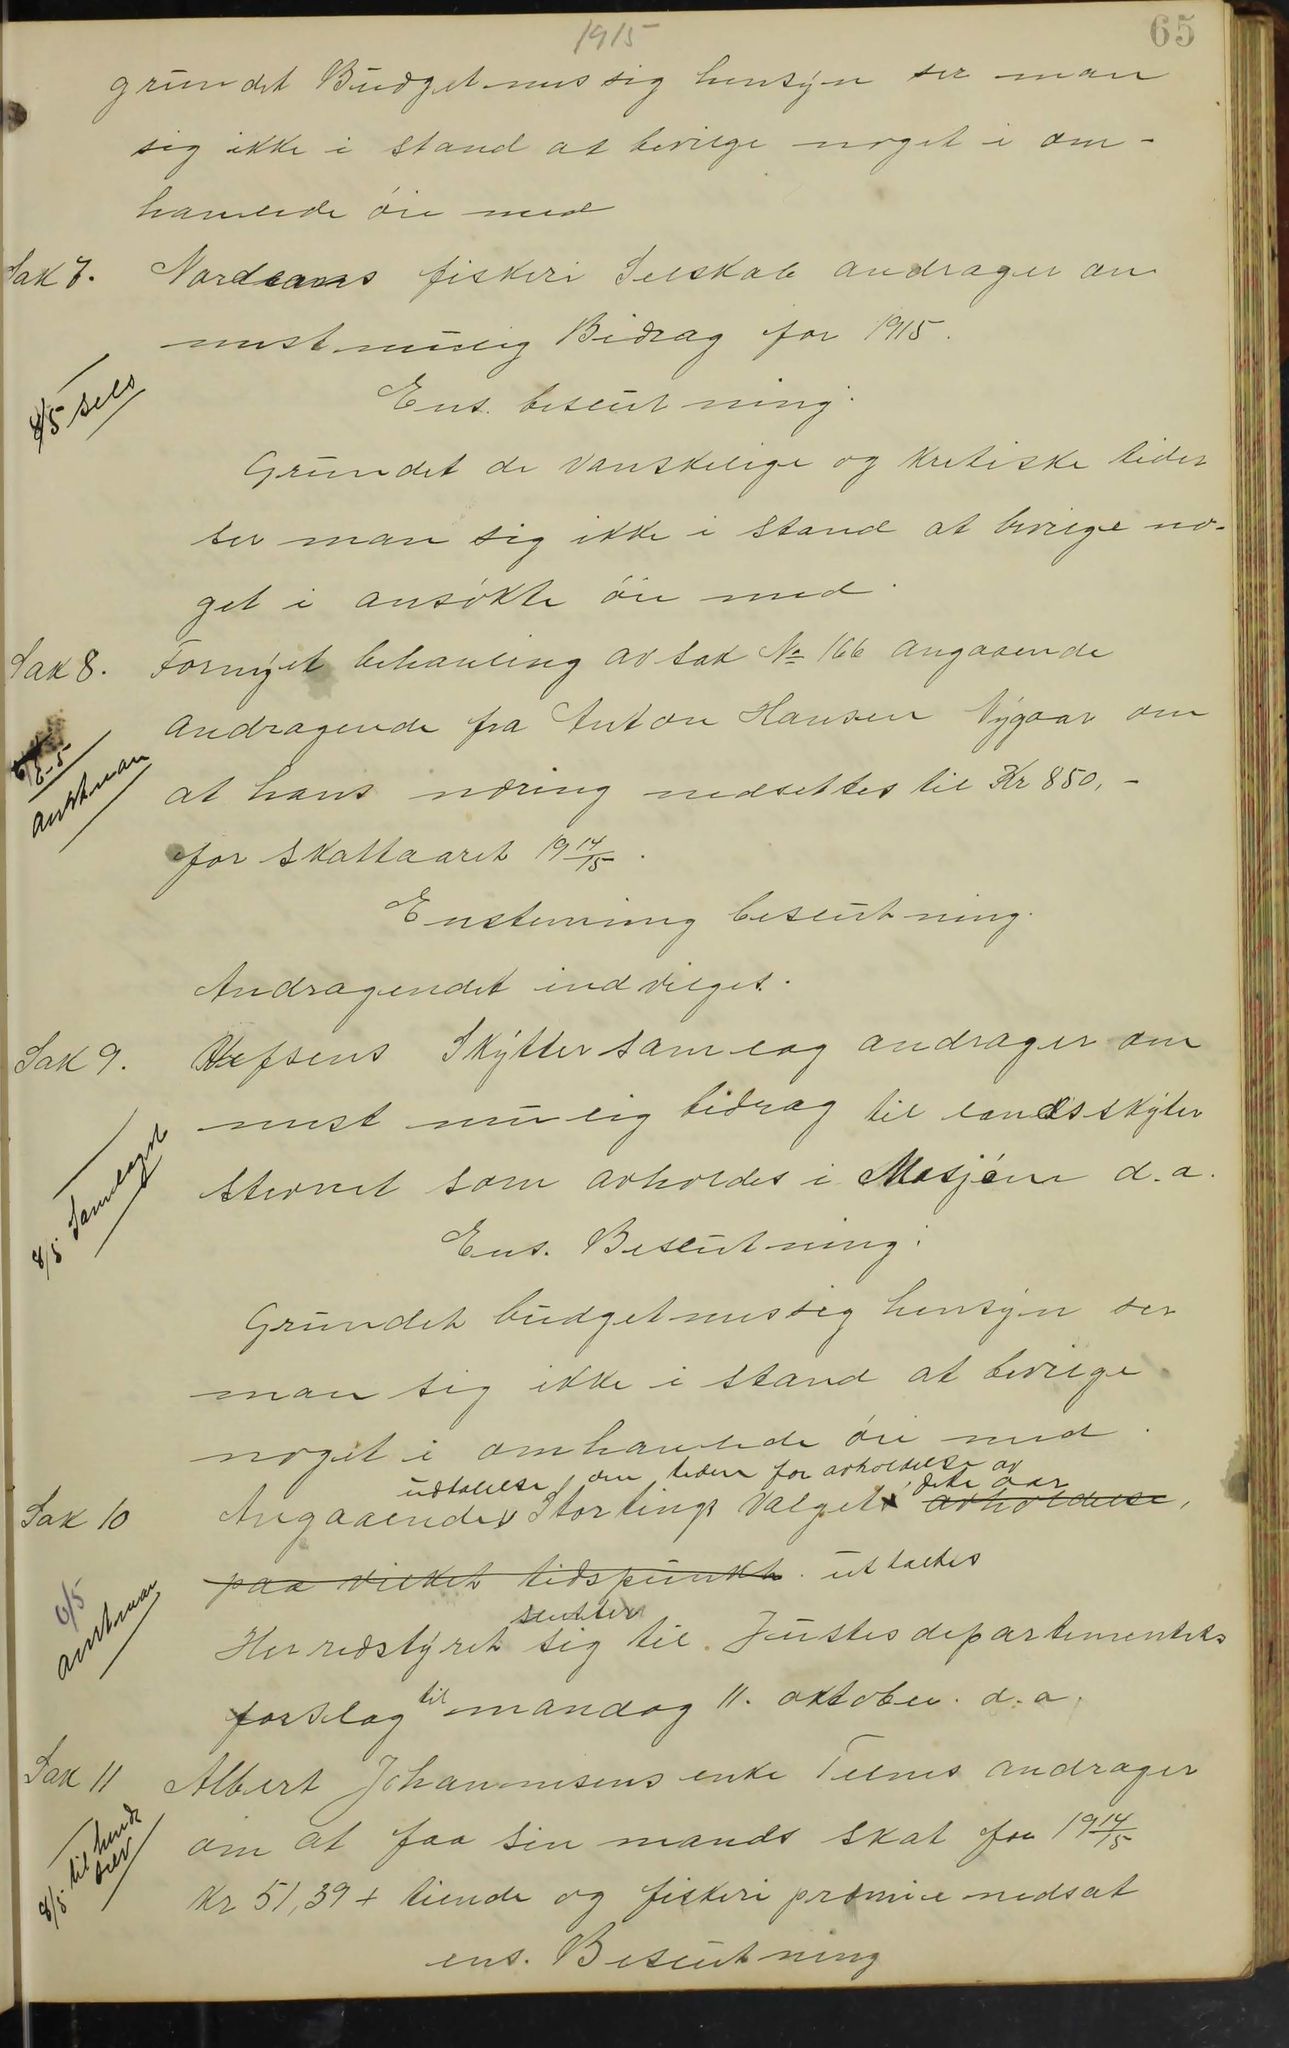 1915
65
grundet Budgetmessig hensyn ser man
sig ikke i stand at bevilge noget i om-
hanlede öie med
Sak 7. Nordlands fiskeri Selskab andrager om
mest mulig Bidrag for 1915.
8/5 sels
Ens. beslutning:
Grundet de vanskelige og kretiske tider
ser man sig ikke i stand at bevilge no-
get i ansökte öie med.
Sak 8. Fornyet behanling av sak No 166 angaaende
andragende fra Anton Hansen Nygaar om
8-5
amtman
at hans næring nedsettes til Kr 850,-
for skattaaret 19 14/15.
Enstemmig beslutning.
Andragendet indvilges.
Sak 9. Vefsens Skyttersamlag andrager om
mest mulig bidrag til landsskyter
8/5 Samlaget
stevnet som avholdes i Mosjöen d.a.
Ens. Beslutning:
Grundet budgetmessig hensyn ser
man sig ikke i stand at bevilge
noget i omhanlede öie med.
udtalelse, om tiden for avholdelse av
Sak 10 Angaaende Stortings Valget dete aar avholdelse,
paa vilket tidspunkt. uttaltes
6/5
amtman
slutter
Herredstyret sig til Justisdepartementets
forslag til mandag 11. oktober. d.a.
Sak 11 Albert Johannesens enke Teines andrager
om at faa sin mands skat for 19 14/15
8/5 til hende
selv
Kr 51,39 + tiende og fiskeri premie nedsat
ens. Beslutning